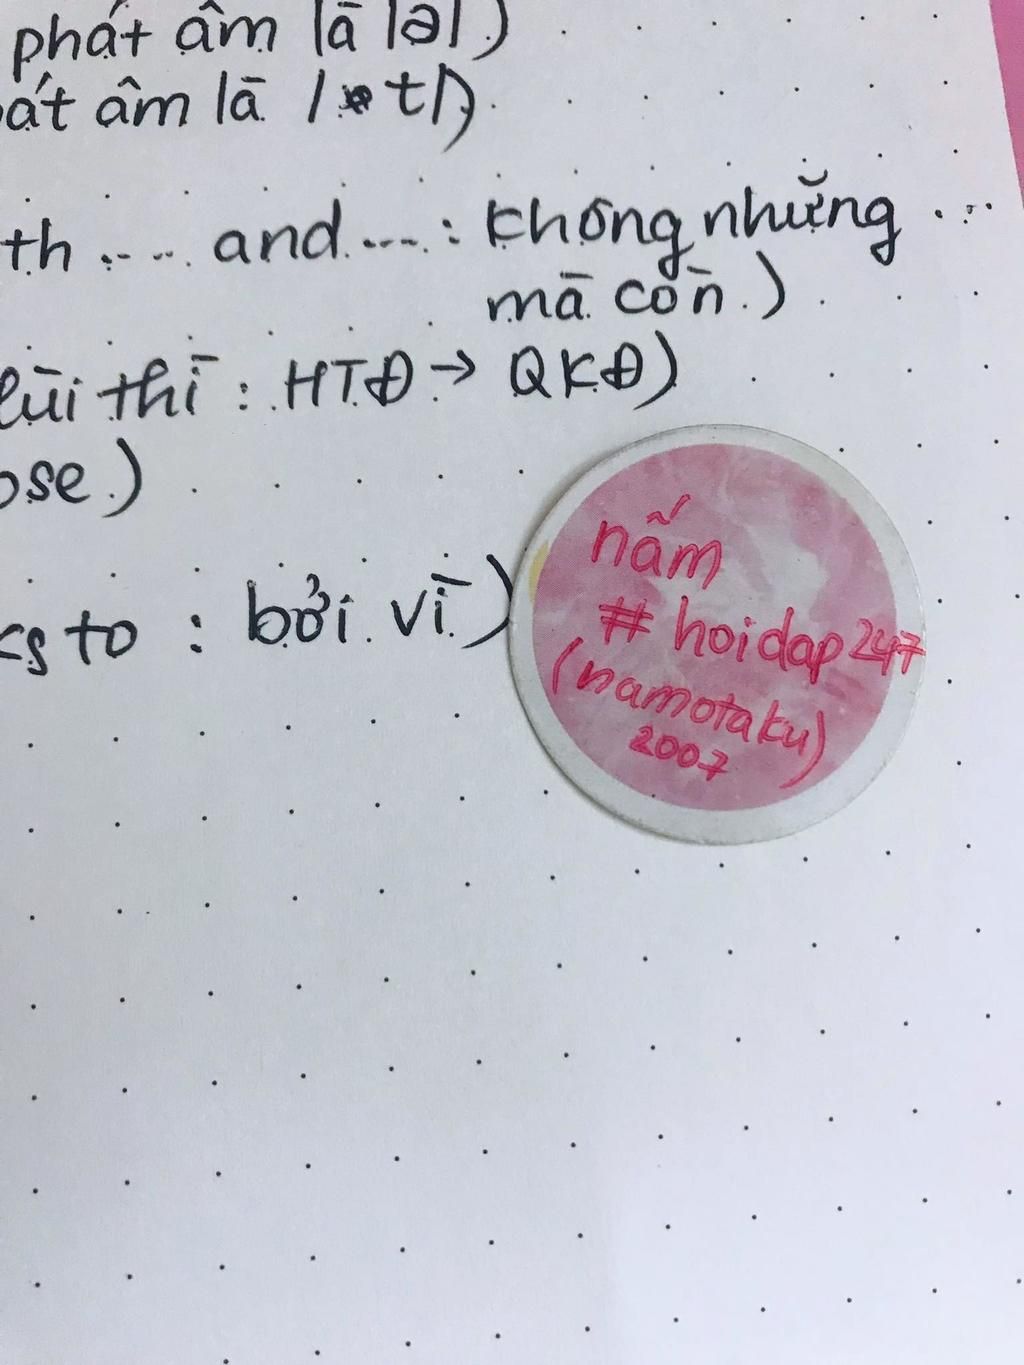 phát âm là /ə/)
át âm là / t/)
th .... and ....: không những ...
mà còn.)
lùi thì : HTĐ → QKĐ)
ose.)
ks to : bởi vì)
nấm
# hoidap247
(namotaku)
2007